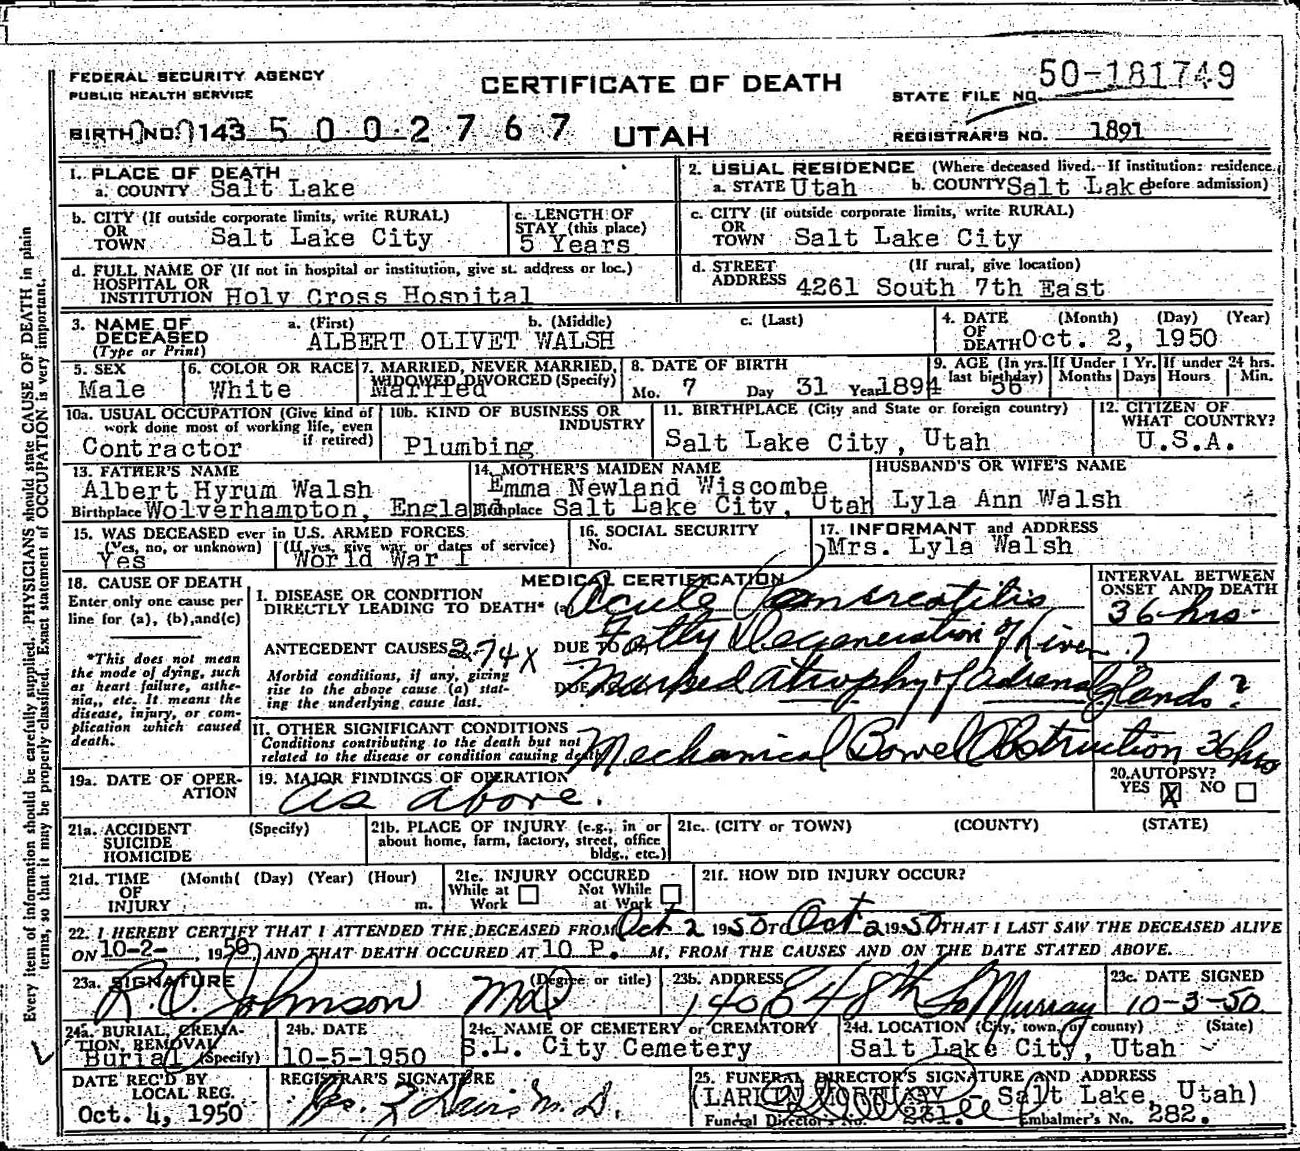 FEDERAL SECURITY AGENCY
PUBLIC HEALTH SERVICE
CERTIFICATE OF DEATH
STATE FILE NO. 50-181749
BIRTH NO. 143 5002767
UTAH
REGISTRAR'S NO. 1891
Every item of information should be carefully supplied. PHYSICIANS should state CAUSE OF DEATH in plain
terms, so that it may be properly classified. Exact statement of OCCUPATION is very important.
1. PLACE OF DEATH
a. COUNTY Salt Lake
2. USUAL RESIDENCE (Where deceased lived. If institution: residence
a. STATE Utah b. COUNTY Salt Lake before admission)
b. CITY (If outside corporate limits, write RURAL)
OR
TOWN Salt Lake City
c. LENGTH OF
STAY (this place)
5 Years
c. CITY (if outside corporate limits, write RURAL)
OR
TOWN Salt Lake City
d. FULL NAME OF (If not in hospital or institution, give st. address or loc.)
HOSPITAL OR
INSTITUTION Holy Cross Hospital
d. STREET (If rural, give location)
ADDRESS 4261 South 7th East
3. NAME OF DECEASED
(Type or Print)
a. (First) b. (Middle) c. (Last)
ALBERT OLIVET WALSH
4. DATE OF DEATH (Month) (Day) (Year)
Oct. 2, 1950
5. SEX
Male
6. COLOR OR RACE
White
7. MARRIED, NEVER MARRIED,
WIDOWED DIVORCED (Specify)
Married
8. DATE OF BIRTH
Mo. 7 Day 31 Year 1894
9. AGE (In yrs. last birthday)
56
If Under 1 Yr.
Months Days
If under 24 hrs.
Hours Min.
10a. USUAL OCCUPATION (Give kind of
work done most of working life, even
if retired)
Contractor
10b. KIND OF BUSINESS OR
INDUSTRY
Plumbing
11. BIRTHPLACE (City and State or foreign country)
Salt Lake City, Utah
12. CITIZEN OF
WHAT COUNTRY?
U.S.A.
13. FATHER'S NAME
Albert Hyrum Walsh
Birthplace Wolverhampton, England
14. MOTHER'S MAIDEN NAME
Emma Newland Wiscombe
Birthplace Salt Lake City, Utah
HUSBAND'S OR WIFE'S NAME
Lyla Ann Walsh
15. WAS DECEASED ever in U.S. ARMED FORCES
(Yes, no, or unknown) (If yes, give war or dates of service)
Yes World War I
16. SOCIAL SECURITY
No.
17. INFORMANT and ADDRESS
Mrs. Lyla Walsh
18. CAUSE OF DEATH
Enter only one cause per
line for (a), (b),and(c)
*This does not mean
the mode of dying, such
as heart failure, asthe-
nia, etc. It means the
disease, injury, or com-
plication which caused
death.
MEDICAL CERTIFICATION
INTERVAL BETWEEN
ONSET AND DEATH
I. DISEASE OR CONDITION
DIRECTLY LEADING TO DEATH* (a) Acute Pancreatitis 36 hrs.
ANTECEDENT CAUSES 274X DUE TO Fatty Degeneration of Liver ?
Morbid conditions, if any, giving
rise to the above cause (a) stat-
ing the underlying cause last.
DUE Marked Atrophy of adrenal glands?
II. OTHER SIGNIFICANT CONDITIONS
Conditions contributing to the death but not
related to the disease or condition causing death
Mechanical Bowel Obstruction 36 hrs
19a. DATE OF OPER-
ATION
19. MAJOR FINDINGS OF OPERATION
as above.
20. AUTOPSY?
YES X NO
21a. ACCIDENT (Specify)
SUICIDE
HOMICIDE
21b. PLACE OF INJURY (e.g., in or
about home, farm, factory, street, office
bldg., etc.)
21c. (CITY or TOWN) (COUNTY) (STATE)
21d. TIME (Month( (Day) (Year) (Hour)
OF
INJURY m.
21e. INJURY OCCURED
While at Work Not While at Work
21f. HOW DID INJURY OCCUR?
22. I HEREBY CERTIFY THAT I ATTENDED THE DECEASED FROM Oct 2 1950 TO Oct 2 1950 THAT I LAST SAW THE DECEASED ALIVE
ON 10-2- 1950, AND THAT DEATH OCCURED AT 10 P. M, FROM THE CAUSES AND ON THE DATE STATED ABOVE.
23a. SIGNATURE (Degree or title)
R.O. Johnson MD
23b. ADDRESS
140 E 48th So Murray
23c. DATE SIGNED
10-3-50
24a. BURIAL, CREMA-
TION, REMOVAL
Burial (Specify)
24b. DATE
10-5-1950
24c. NAME OF CEMETERY or CREMATORY
S.L. City Cemetery
24d. LOCATION (City, town, or county) (State)
Salt Lake City, Utah
DATE REC'D BY
LOCAL REG.
Oct. 4, 1950
REGISTRAR'S SIGNATURE
Davis M.D.
25. FUNERAL DIRECTOR'S SIGNATURE AND ADDRESS
(LARKIN MORTUARY - Salt Lake, Utah)
Funeral Director's No. 231. Embalmer's No. 282.